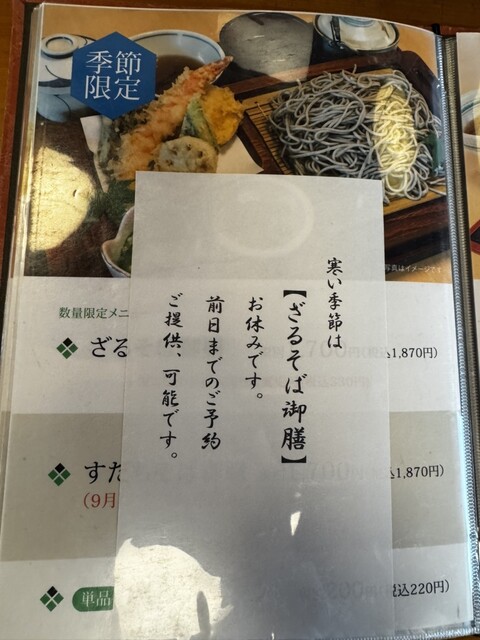 季節
限定
写真はイメージです
寒い季節は
【ざるそば御膳】
お休みです。
前日までのご予約
ご提供、可能です。
数量限定メニ
ざる
700円(税込1,870円)
すだ
700円(税込1,870円)
(9月
単品
200円(税込220円)